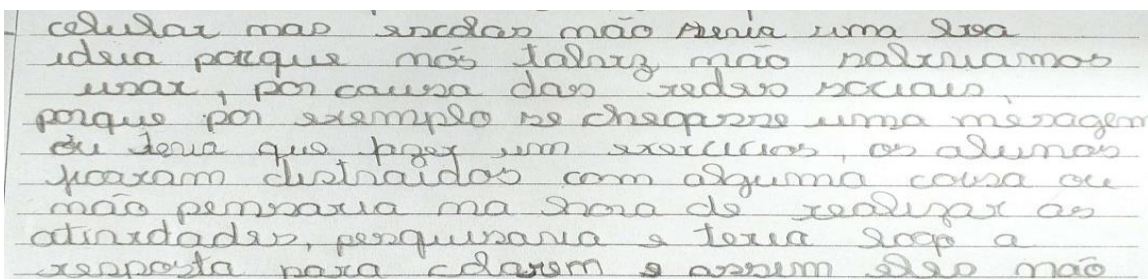 celular nas escolas não seria uma boa
ideia porque nós talvez não saberiamos
usar, por causa das redes sociais,
porque por exemplo se chegasse uma mesagem
ou teria que fazer um exercicios, os alunos
ficaram distraidos com alguma coisa ou
não pensaria na hora de realizar as
atividades, pesquisaria e teria logo a
resposta para colarem e assim eles não